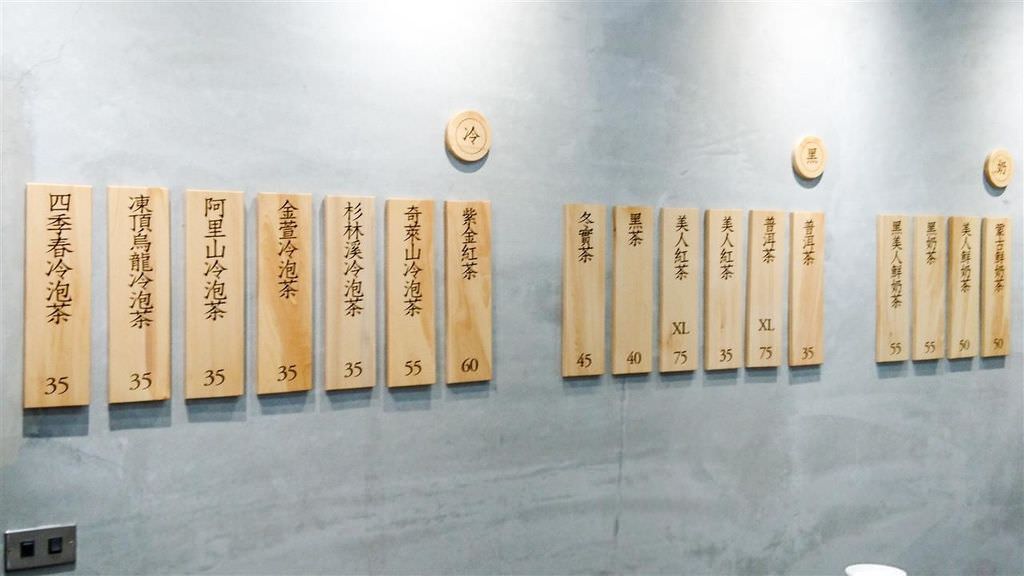 冷
四季春冷泡茶
35
凍頂烏龍冷泡茶
35
阿里山冷泡茶
35
金萱冷泡茶
35
杉林溪冷泡茶
35
奇萊山冷泡茶
55
紫金紅茶
60
黑
冬實茶
45
黑茶
40
美人紅茶
XL
75
美人紅茶
35
普洱茶
XL
75
普洱茶
35
奶
黑美人鮮奶茶
55
黑奶茶
55
美人鮮奶茶
50
蒙古鮮奶茶
50